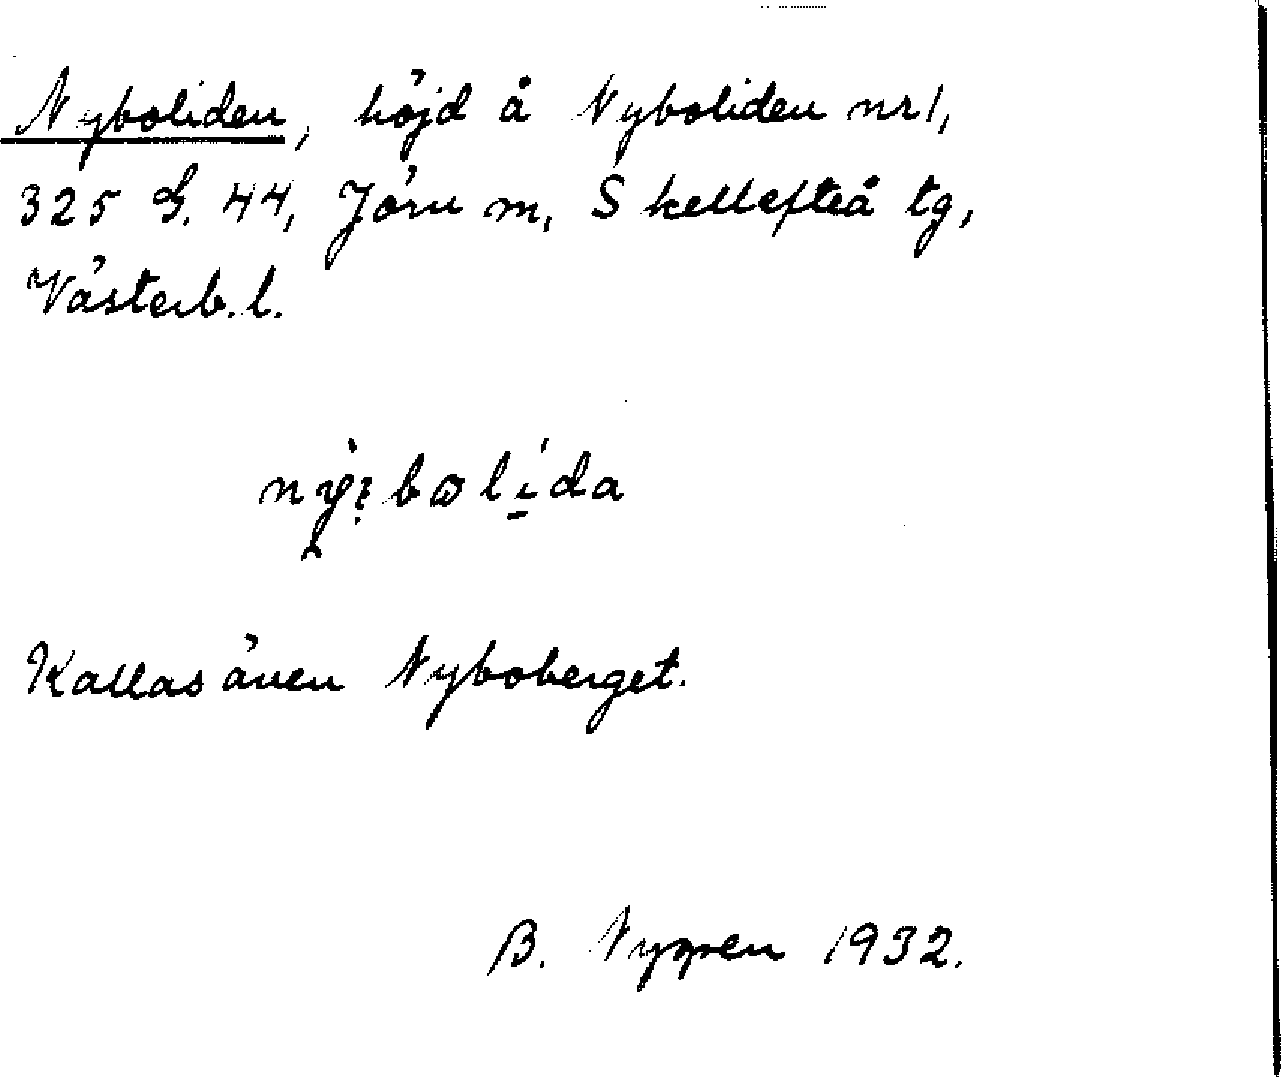 Nyboliden, höjd å Nyboliden nr 1,
325 G. 44, Jörn m, Skellefteå tg,
Västerb. l.
Kallas även Nyboberget.
B. Nygren 1932.